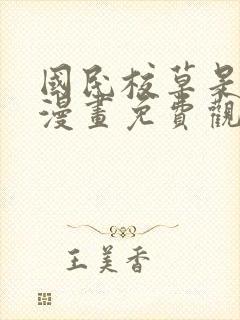 國民校草是
漫畫免費觀
王美香